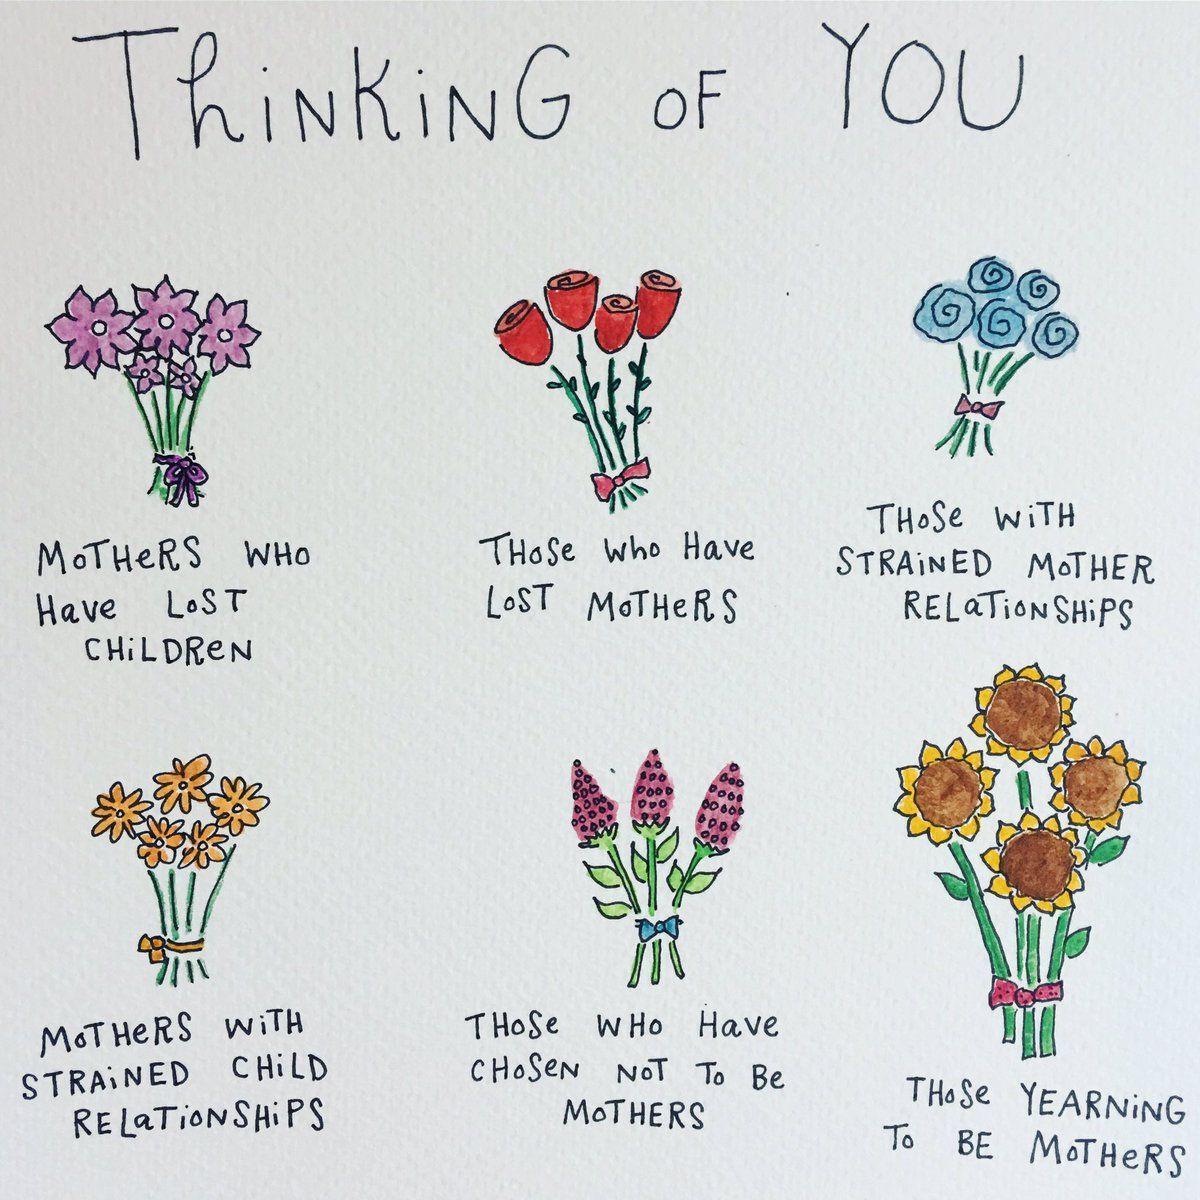 Thinking of You
Mothers who
have lost
children
Those who have
lost mothers
Those with
strained mother
relationships
Mothers with
strained child
relationships
Those who have
chosen not to be
mothers
Those yearning
to be mothers